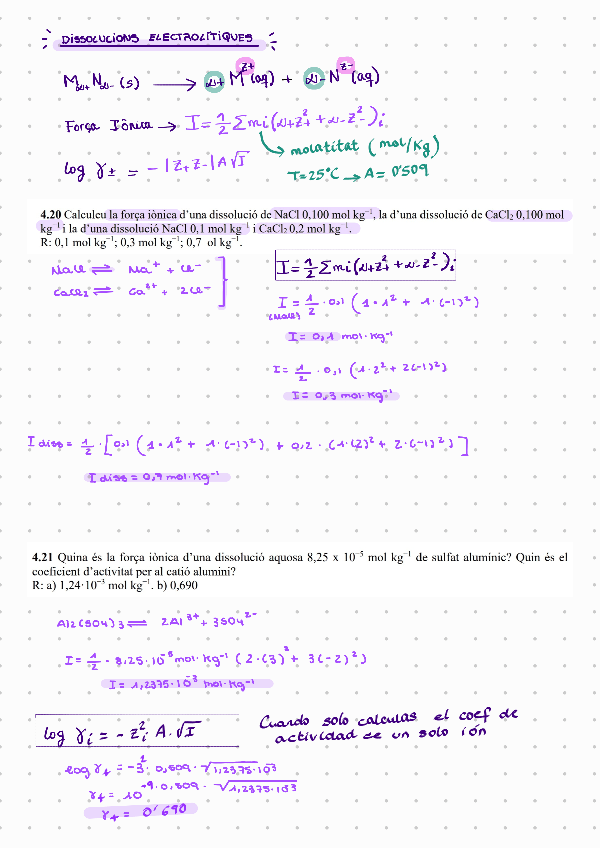 DISSOLUCIONS ELECTROLÍTIQUES
Mν+ Nν- (s) → ν+ M^z+ (aq) + ν- N^z- (aq)
Força Iònica → I = 1/2 Σ mi (ν+ z+² + ν- z-²)i
molalitat (mol/Kg)
log γ± = - |z+ z-| A √I
T=25°C → A = 0'509
4.20 Calculeu la força iònica d'una dissolució de NaCl 0,100 mol kg⁻¹, la d'una dissolució de CaCl₂ 0,100 mol
kg⁻¹ i la d'una dissolució NaCl 0,1 mol kg⁻¹ i CaCl₂ 0,2 mol kg⁻¹.
R: 0,1 mol kg⁻¹; 0,3 mol kg⁻¹; 0,7 ol kg⁻¹.
NaCl ⇌ Na⁺ + Cl⁻
CaCl2 ⇌ Ca²⁺ + 2Cl⁻
I = 1/2 Σ mi (ν+ z+² + ν- z-²)i
I = 1/2 · 0,1 (1 · 1² + 1 · (-1)²)
(NaCl)
I = 0,1 mol · Kg⁻¹
I = 1/2 · 0,1 (1 · 2² + 2(-1)²)
I = 0,3 mol · Kg⁻¹
I diss = 1/2 · [0,1 (1 · 1² + 1 · (-1)²) + 0,2 · (1 · (2)² + 2 · (-1)²)]
I diss = 0,7 mol · Kg⁻¹
4.21 Quina és la força iònica d'una dissolució aquosa 8,25 x 10⁻⁵ mol kg⁻¹ de sulfat alumínic? Quin és el
coeficient d'activitat per al catió alumini?
R: a) 1,24·10⁻³ mol kg⁻¹. b) 0,690
Al2(SO4)3 ⇌ 2Al³⁺ + 3SO4²⁻
I = 1/2 · 8,25 · 10⁻⁵ mol · Kg⁻¹ (2 · (3)² + 3(-2)²)
I = 1,2375 · 10⁻³ mol · Kg⁻¹
log γi = - zi² A · √I
Cuando solo calculas el coef de
actividad de un solo ión
log γ+ = -3² · 0,509 · √1,2375 · 10⁻³
γ+ = 10^-9 · 0,509 · √1,2375 · 10⁻³
γ+ = 0'690